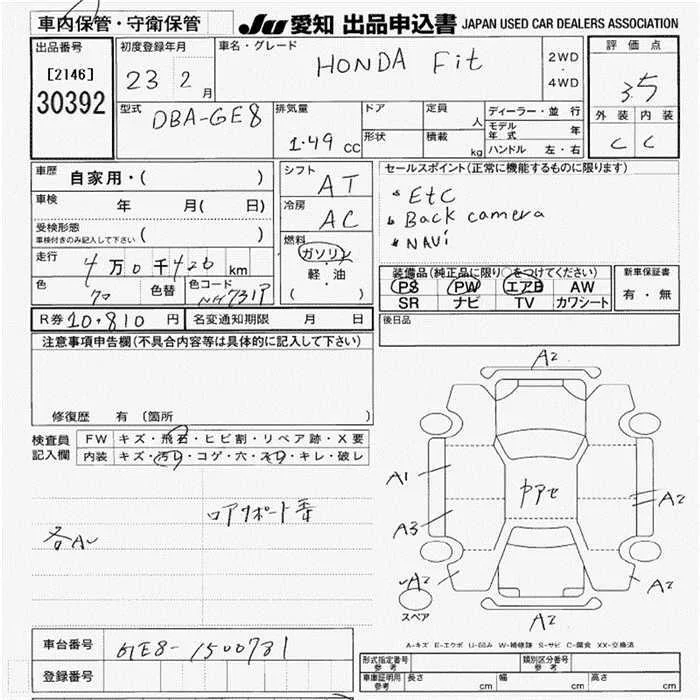 車内保管・守衛保管
JU 愛知 出品申込書 JAPAN USED CAR DEALERS ASSOCIATION
出品番号
[2146]
30392
初度登録年月
23 2 月
車名・グレード
HONDA Fit
2WD
・
4WD
評価点
3.5
外装 内装
C C
型式
DBA-GE8
排気量
1.49 cc
ドア
形状
定員 人
積載 kg
ディーラー・並行
モデル年式 年
ハンドル 左・右
車歴 自家用・( )
車検 年 月( 日)
受検形態
車検付きのみ記入して下さい ( )
走行 4万0千420 km
色 色替 色コード NH731P
シフト AT
冷房 AC
燃料
ガソリン
・
軽油
( )
セールスポイント(正常に機能するものに限ります)
* Etc
* Back camera
* NAVi
装備品(純正品に限り○をつけてください)
PS PW エアB AW
SR ナビ TV カワシート
新車保証書
有・無
R券 10,810 円 名変通知期限 月 日
後日品
注意事項申告欄(不具合内容等は具体的に記入して下さい)
修復歴 有 〔箇所
検査員
記入欄
FW キズ・飛石・ヒビ割・リペア跡・X要
内装 キズ・汚れ・コゲ・穴・スレ・キレ・破レ
ロアサポート
各A
A2
A1
A2
A3
A2
A2
A2
スペア
A-キズ E-エクボ U-凹み W-補修跡 S-サビ C-腐食 XX-交換済
車台番号 GE8-1500731
登録番号
形式指定番号
参考
類別区分番号
参考
車庫証明用
参考
長さ cm 幅 cm 高さ cm